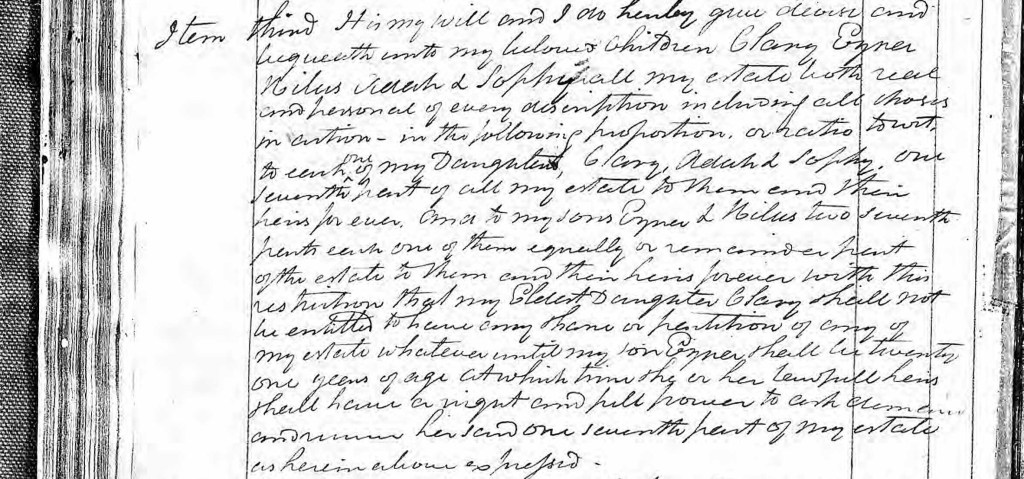 Item third It is my will and I do hereby give devise and
bequeath unto my beloved Children Clary Ezner
Nilus Adah & Sophy all my estate both real
and personal of every description including all choses
in action - in the following proportion, or ratio to wit,
to each one of my Daughters, Clary, Adah & Sophy. one
seventh part of all my estate to them and their
heirs for ever. and to my sons Ezner & Nilus two seventh
parts each one of them equally or remainder part
of the estate to them and their heirs forever with this
restriction that my Eldest Daughter Clary shall not
be entitled to have any share or partition of any of
my estate whatever until my son Ezner shall be twenty
one years of age at which time she or her lawfull heirs
shall have a right and full power to ask demand
and receive her said one seventh part of my estate
as herein above expressed -